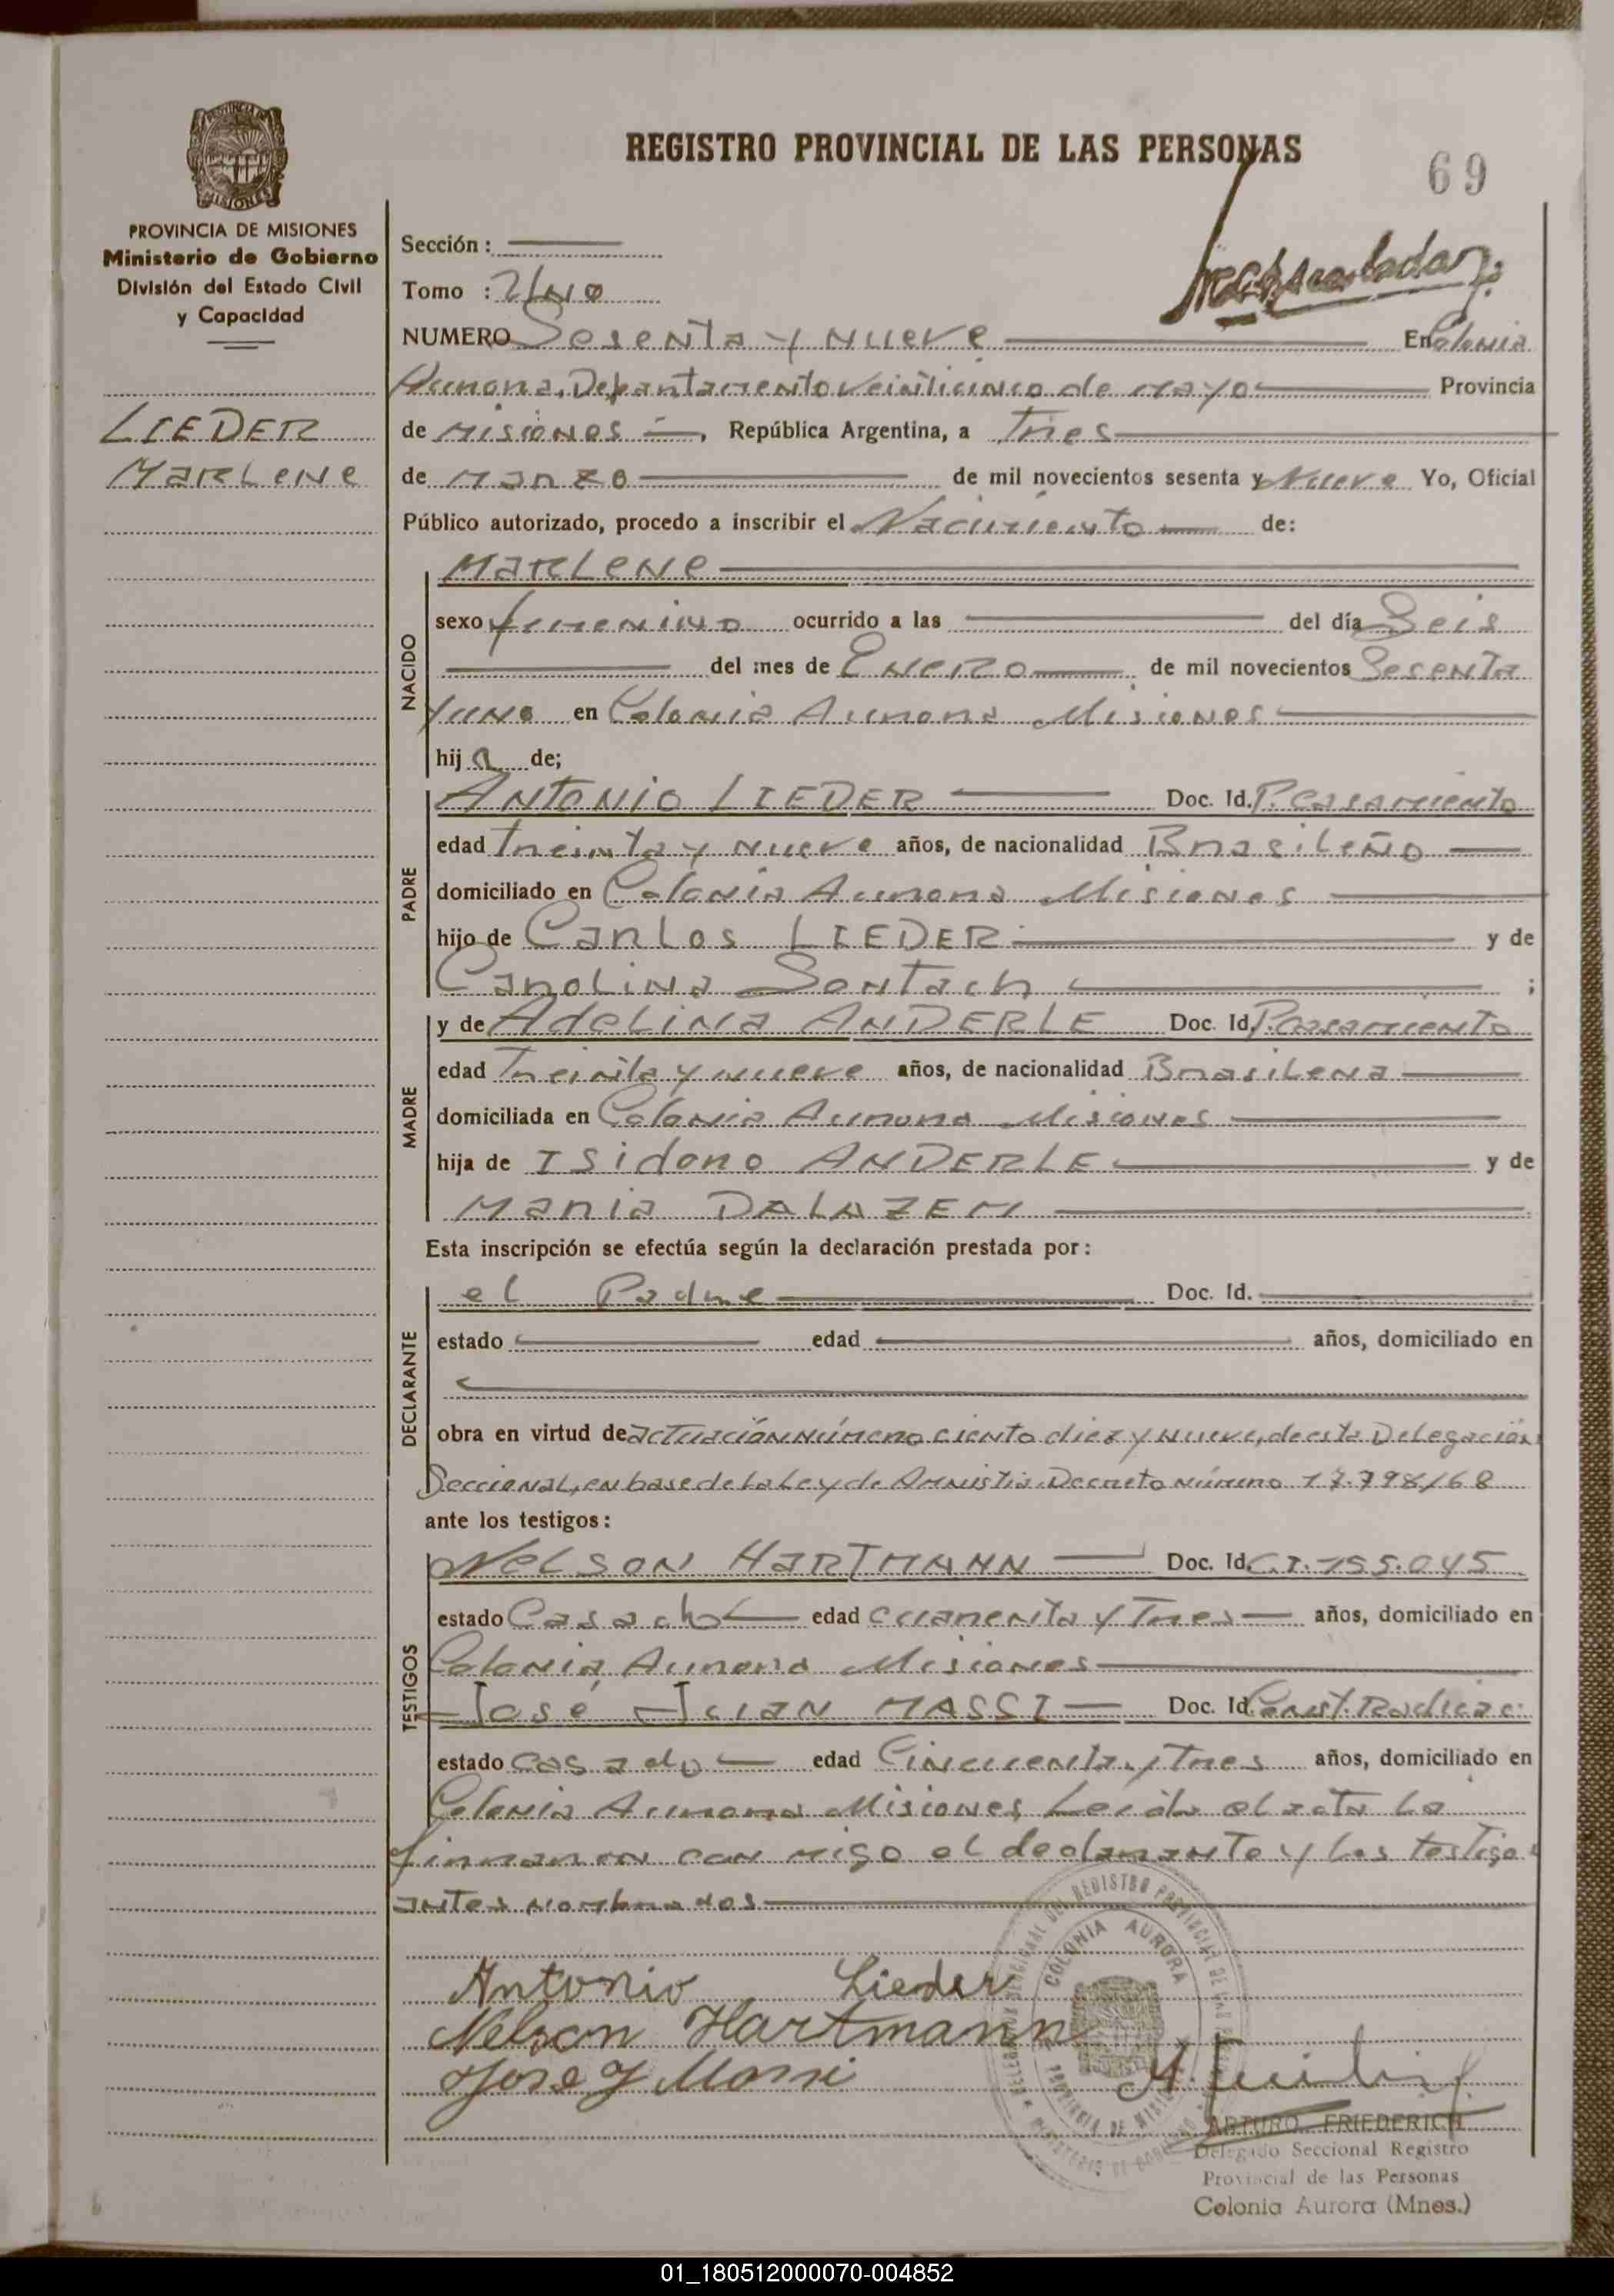 REGISTRO PROVINCIAL DE LAS PERSONAS
69
PROVINCIA DE MISIONES
Ministerio de Gobierno
División del Estado Civil
y Capacidad
LIEDER
MARLENE
Sección :
Tomo : UNO
NUMERO Sesenta y Nueve En Colonia
Aurora, Departamento Veinticinco de mayo Provincia
de MISIONES, República Argentina, a Tres
de MARZO de mil novecientos sesenta y Nueve Yo, Oficial
Público autorizado, procedo a inscribir el Nacimiento de:
NACIDO
MARLENE
sexo femenino ocurrido a las del día Seis
del mes de ENERO de mil novecientos Sesenta
y uno en Colonia Aurora Misiones
hija de;
PADRE
ANTONIO LIEDER Doc. Id. P. Casamiento
edad Treinta y Nueve años, de nacionalidad Brasileño
domiciliado en Colonia Aurora Misiones
hijo de Carlos LIEDER y de
Carolina Sontach ;
MADRE
y de Adelina ANDERLE Doc. Id. P. Casamiento
edad Treinta y nueve años, de nacionalidad Brasilena
domiciliada en Colonia Aurora Misiones
hija de Isidoro ANDERLE y de
Maria DALAZEM
Esta inscripción se efectúa según la declaración prestada por:
DECLARANTE
el Padre Doc. Id.
estado edad años, domiciliado en
obra en virtud de actuación número ciento diez y nueve, de esta Delegación
Seccional, en base de la Ley de Amnistia. Decreto número 17.798/68
ante los testigos:
TESTIGOS
NELSON HARTMANN Doc. Id. C.I. 155.045
estado Casado edad cuarenta y Tres años, domiciliado en
Colonia Aurora Misiones
José Juan MASSI Doc. Id. Const. Radicac.
estado casado edad Cincuenta y Tres años, domiciliado en
Colonia Aurora Misiones Leida el acta La
firmaron con migo el declarante y los testigos
antes nombrados
Antonio Lieder
Nelson Hartmann
Jose J Massi
COLONIA AURORA
PROVINCIA DE MISIONES
ARTURO FRIEDERICH
Delegado Seccional Registro
Provincial de las Personas
Colonia Aurora (Mnes.)
01_180512000070-004852